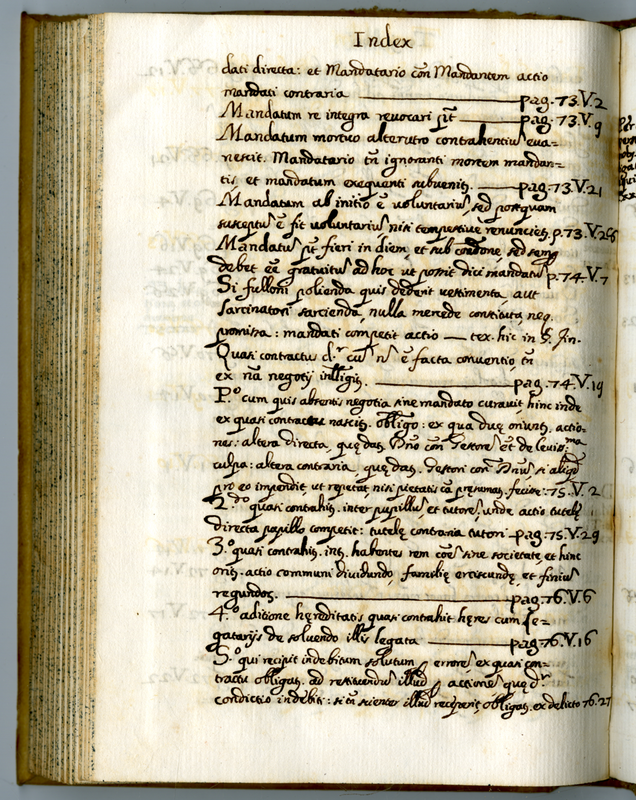 Index
dati directa: et Mandatario con̄ Mandantem actio
mandati contraria — pag. 73. V. 2
Mandatum re integra revocari pt̄ — pag. 73. V. 9
Mandatum mortuo alterutro contrahentiū eva=
nescit. Mandatario tn̄ ignoranti mortem mandan=
tis, et mandatum exequenti subvenit. — pag. 73. V. 21
Mandatum ab initio ē voluntariū, sed postquam
susceptū ē fit voluntariū nisi tempestive renunciet. p. 73. V. 26
Mandatū pt̄ fieri in diem, et sub condone, sed semp
debet eē gratuitū ad hoc ut possit dici mandatū pag. 74. V. 7
Si fulloni polienda quis dederit vestimenta aut
sarcinatori sarcienda, nulla mercede constituta, neq.
promissa: mandati competit actio — tex. hic in §. fin.
Quasi contractu d.r cū n̄ ē facta conventio, tn̄
ex nā negotij intlligit. — pag. 74. V. 19
P.o cum quis absentis negotia sine mandato curavit hinc inde
ex quasi contractu nascit. obligo: ex qua duę oriunt. actio=
nes: altera directa, quę dat. Dn̄o con̄ Gestorē et de leviss.ma
culpa: altera contraria, quę dat. Gestori con̄ Dn̄ū, si aliqd
pro eo impendit, ut repetat nisi pietatis cā presumat. fecisse: 75. V. 2
2.do quasi contrahit. inter pupillū et tutorē, unde actio tutelę
directa pupillo competit: tutelę contraria tutori — pag. 75. V. 29
3.o quasi contrahit. int. habentes rem coē̄ sine societate, et hinc
orit. actio communi dividundo, familię erciscundę et finiū
regundos. — pag. 76. V. 6
4.o aditione hęreditatis quasi contrahit hęres cum le=
gatarijs de solvendo illis legata — pag. 76. V. 16
5.o qui recipit indebitum solutum p errorē, ex quasi con=
tractu obligat. ad restituendū illud p actionē quę d.r
condictio indebiti: si tn̄ scienter illud receperit, obligat. ex delicto 76. 27